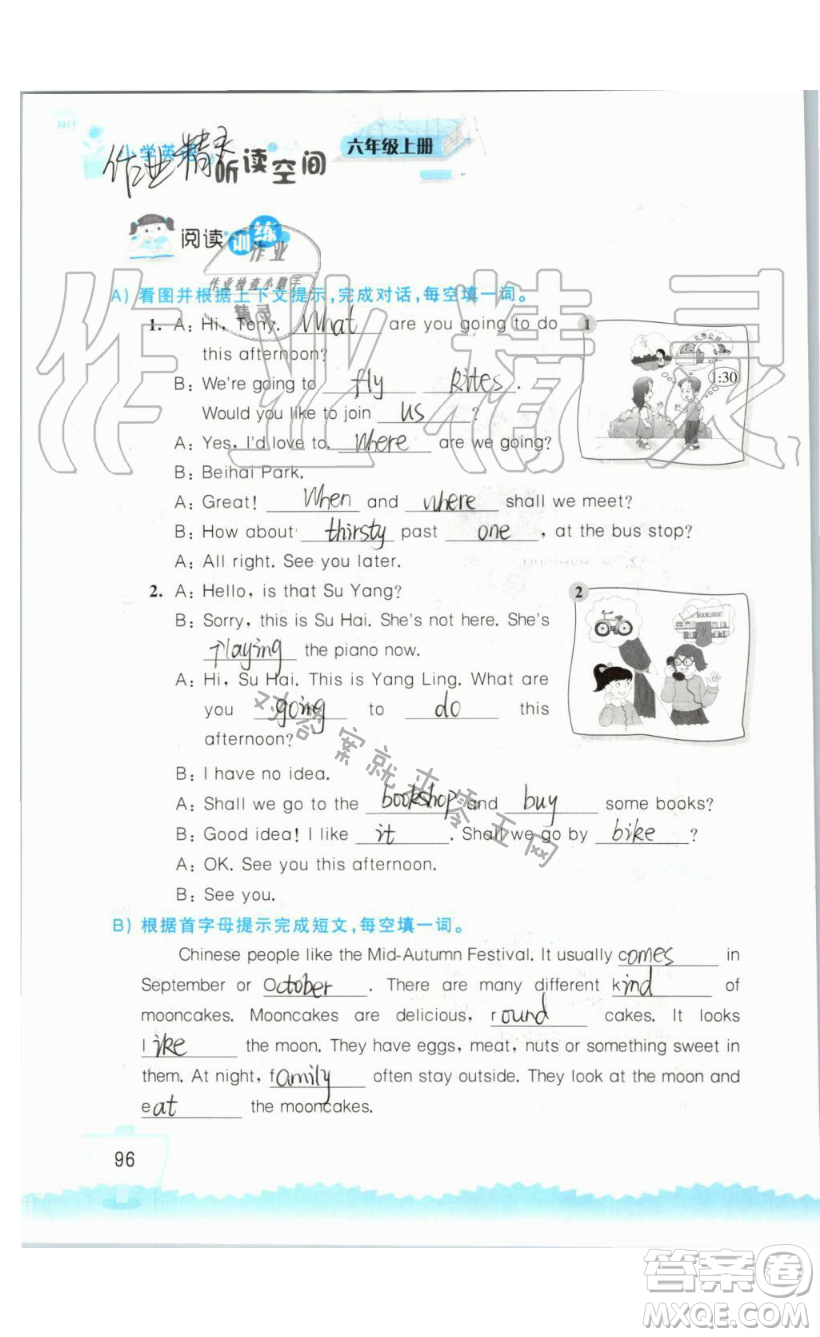 小学英语
作业精灵
听读空间
六年级上册
阅读训练
作业
作业检查小助手
精灵
作业精灵
A) 看图并根据上下文提示,完成对话,每空填一词。
1. A: Hi, Tony. What are you going to do
this afternoon?
B: We're going to fly kites.
Would you like to join us?
A: Yes, I'd love to. Where are we going?
B: Beihai Park.
A: Great! When and where shall we meet?
B: How about thirsty past one, at the bus stop?
A: All right. See you later.
1
1:30
2. A: Hello, is that Su Yang?
B: Sorry, this is Su Hai. She's not here. She's
playing the piano now.
A: Hi, Su Hai. This is Yang Ling. What are
you going to do this
afternoon?
B: I have no idea.
A: Shall we go to the bookshop and buy some books?
B: Good idea! I like it. Shall we go by bike?
A: OK. See you this afternoon.
B: See you.
2
对答案就来零五网
B) 根据首字母提示完成短文,每空填一词。
Chinese people like the Mid-Autumn Festival. It usually comes in
September or October. There are many different kind of
mooncakes. Mooncakes are delicious, round cakes. It looks
like the moon. They have eggs, meat, nuts or something sweet in
them. At night, family often stay outside. They look at the moon and
eat the mooncakes.
96
答案卷
MXQE.COM